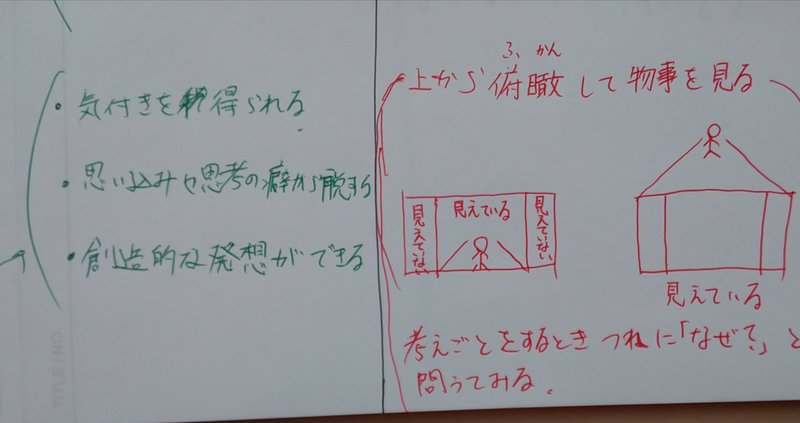 ・気付きを得られる
・思い込みや思考の癖から脱する
・創造的な発想ができる
ふ かん
上から俯瞰して物事を見る
見えていない
見えている
見えていない
見えている
考えごとをするとき つねに「なぜ?」と
問うてみる。
TITLE / NO.